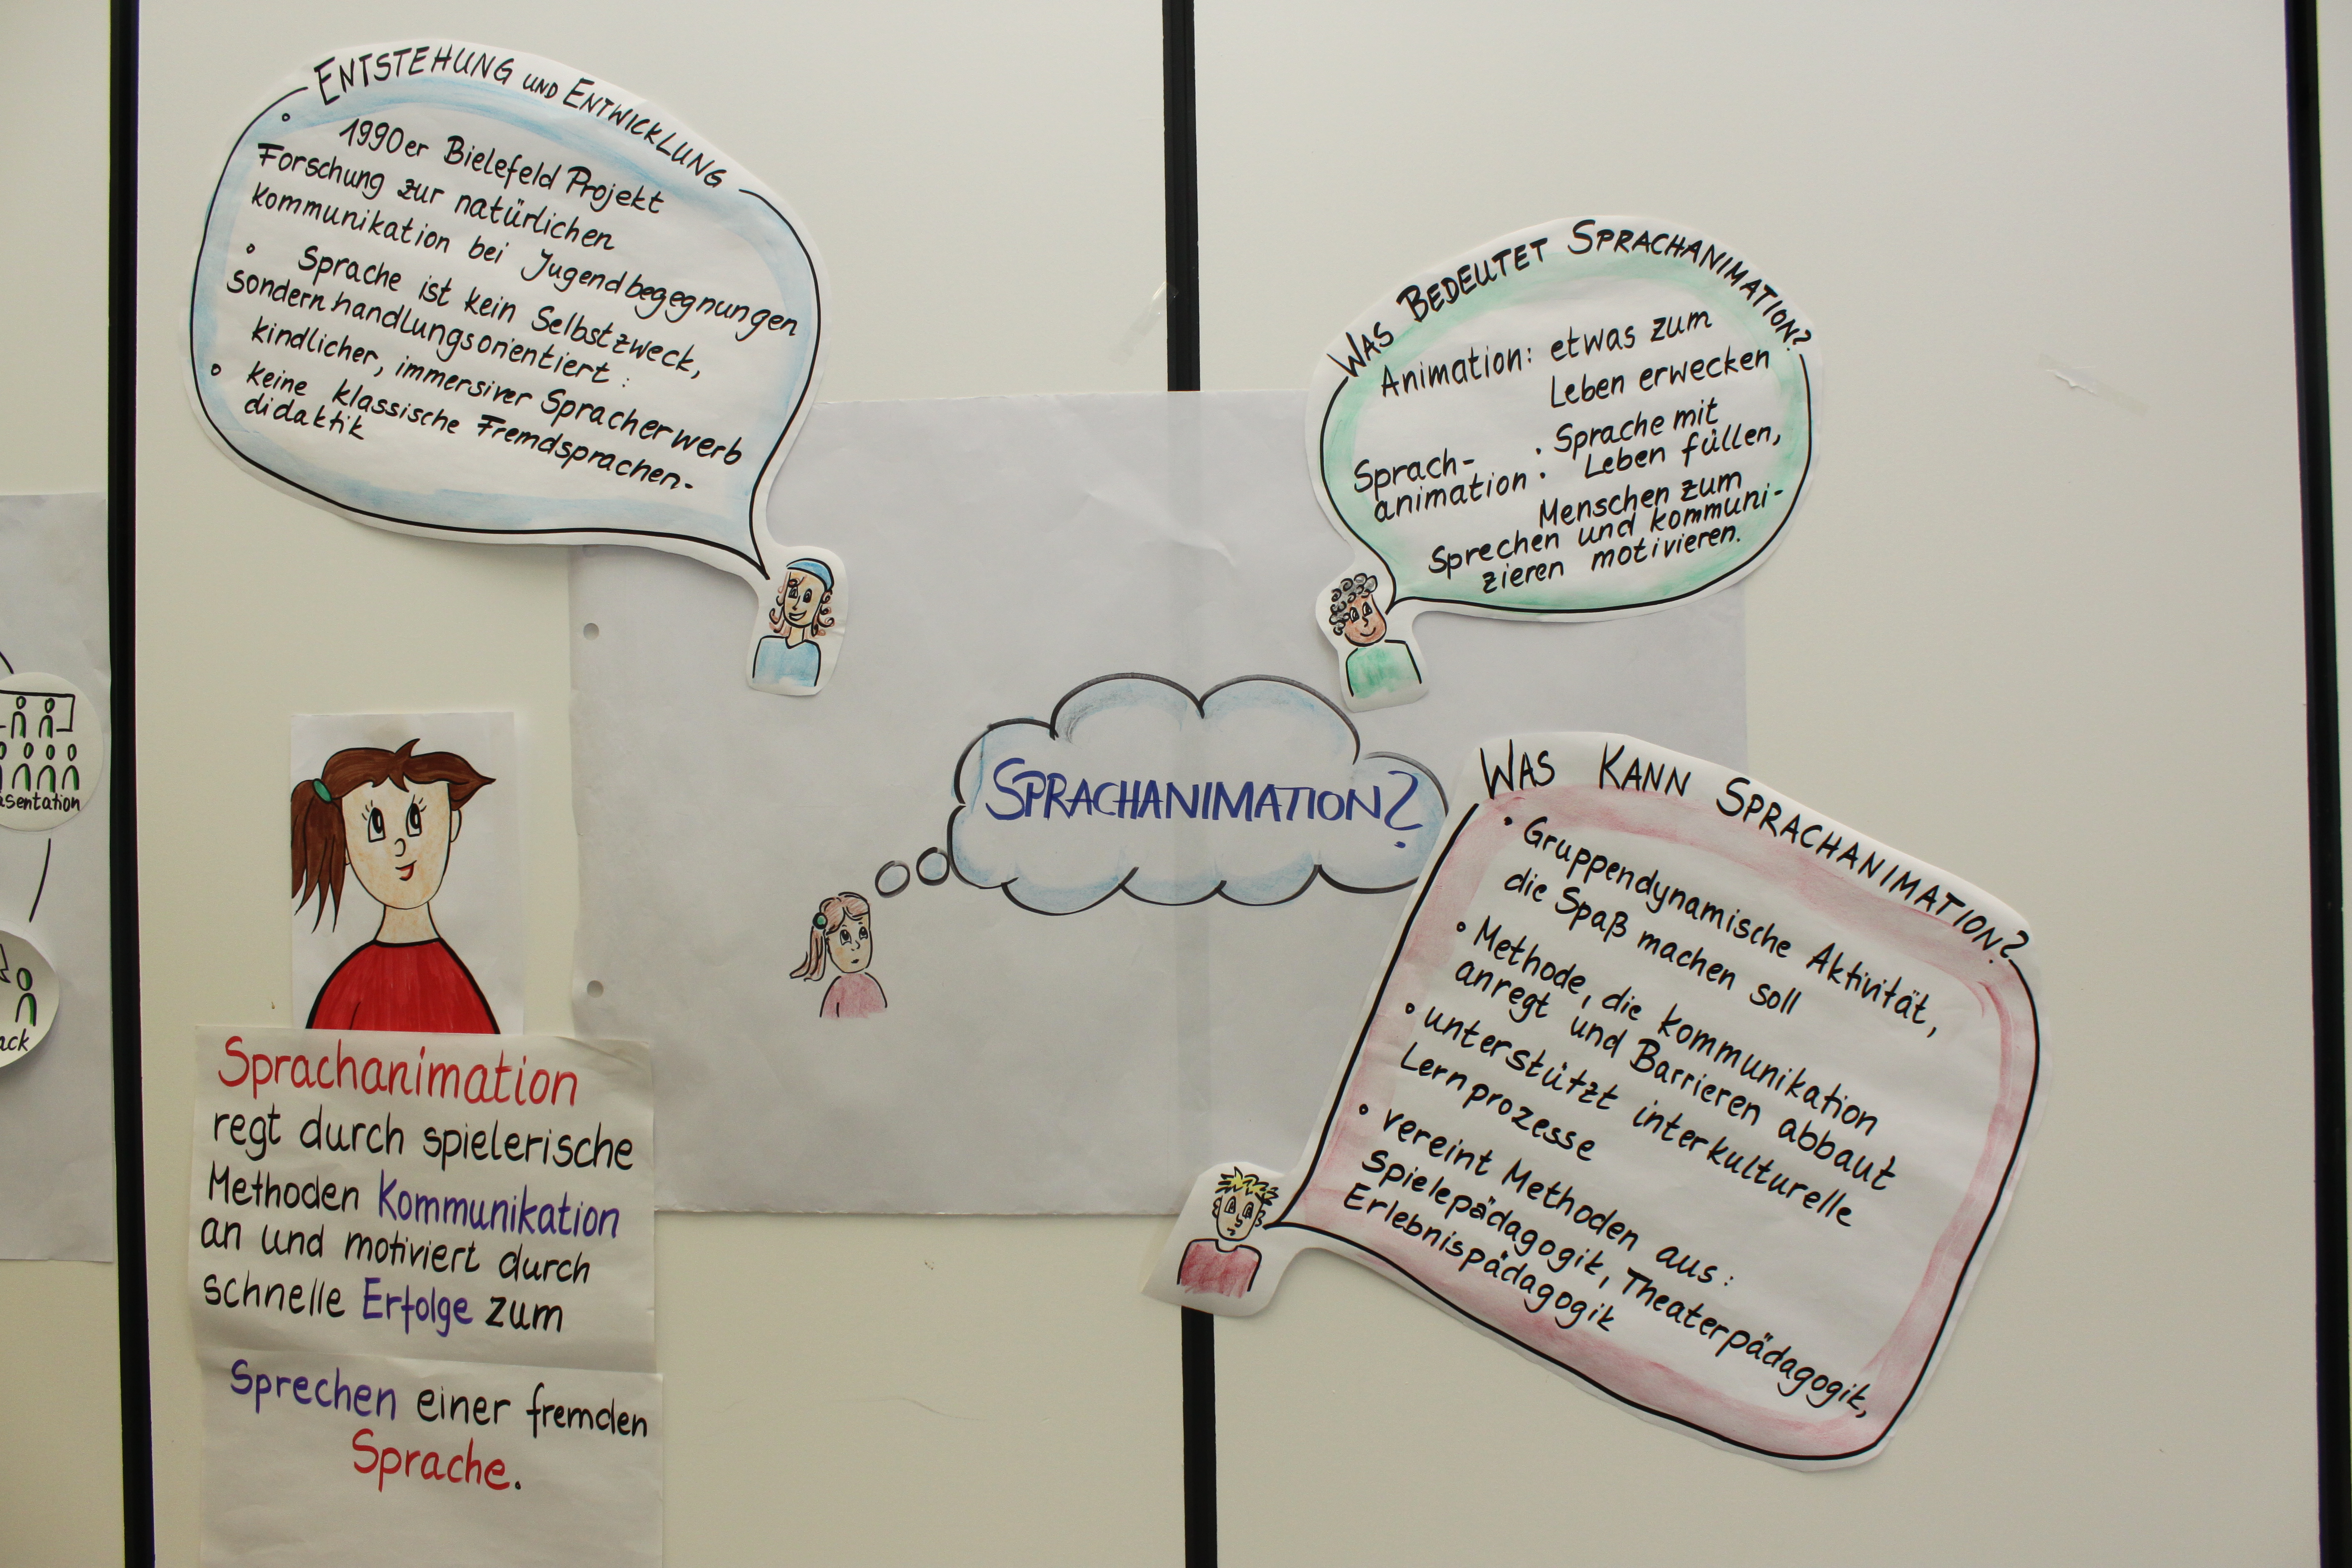 ENTSTEHUNG UND ENTWICKLUNG
° 1990er Bielefeld Projekt
Forschung zur natürlichen
Kommunikation bei Jugendbegegnungen
° Sprache ist kein Selbstzweck,
sondern handlungsorientiert:
kindlicher, immersiver Spracherwerb
° keine klassische Fremdsprachen-
didaktik
WAS BEDEUTET SPRACHANIMATION?
Animation: etwas zum
Leben erwecken
Sprach-
animation: Sprache mit
Leben füllen,
Menschen zum
Sprechen und kommuni-
zieren motivieren.
SPRACHANIMATION?
WAS KANN SPRACHANIMATION?
• Gruppendynamische Aktivität,
die Spaß machen soll
• Methode, die Kommunikation
anregt und Barrieren abbaut
° unterstützt interkulturelle
Lernprozesse
• vereint Methoden aus:
Spielepädagogik, Theaterpädagogik,
Erlebnispädagogik
Sprachanimation
regt durch spielerische
Methoden Kommunikation
an und motiviert durch
schnelle Erfolge zum
Sprechen einer fremden
Sprache.